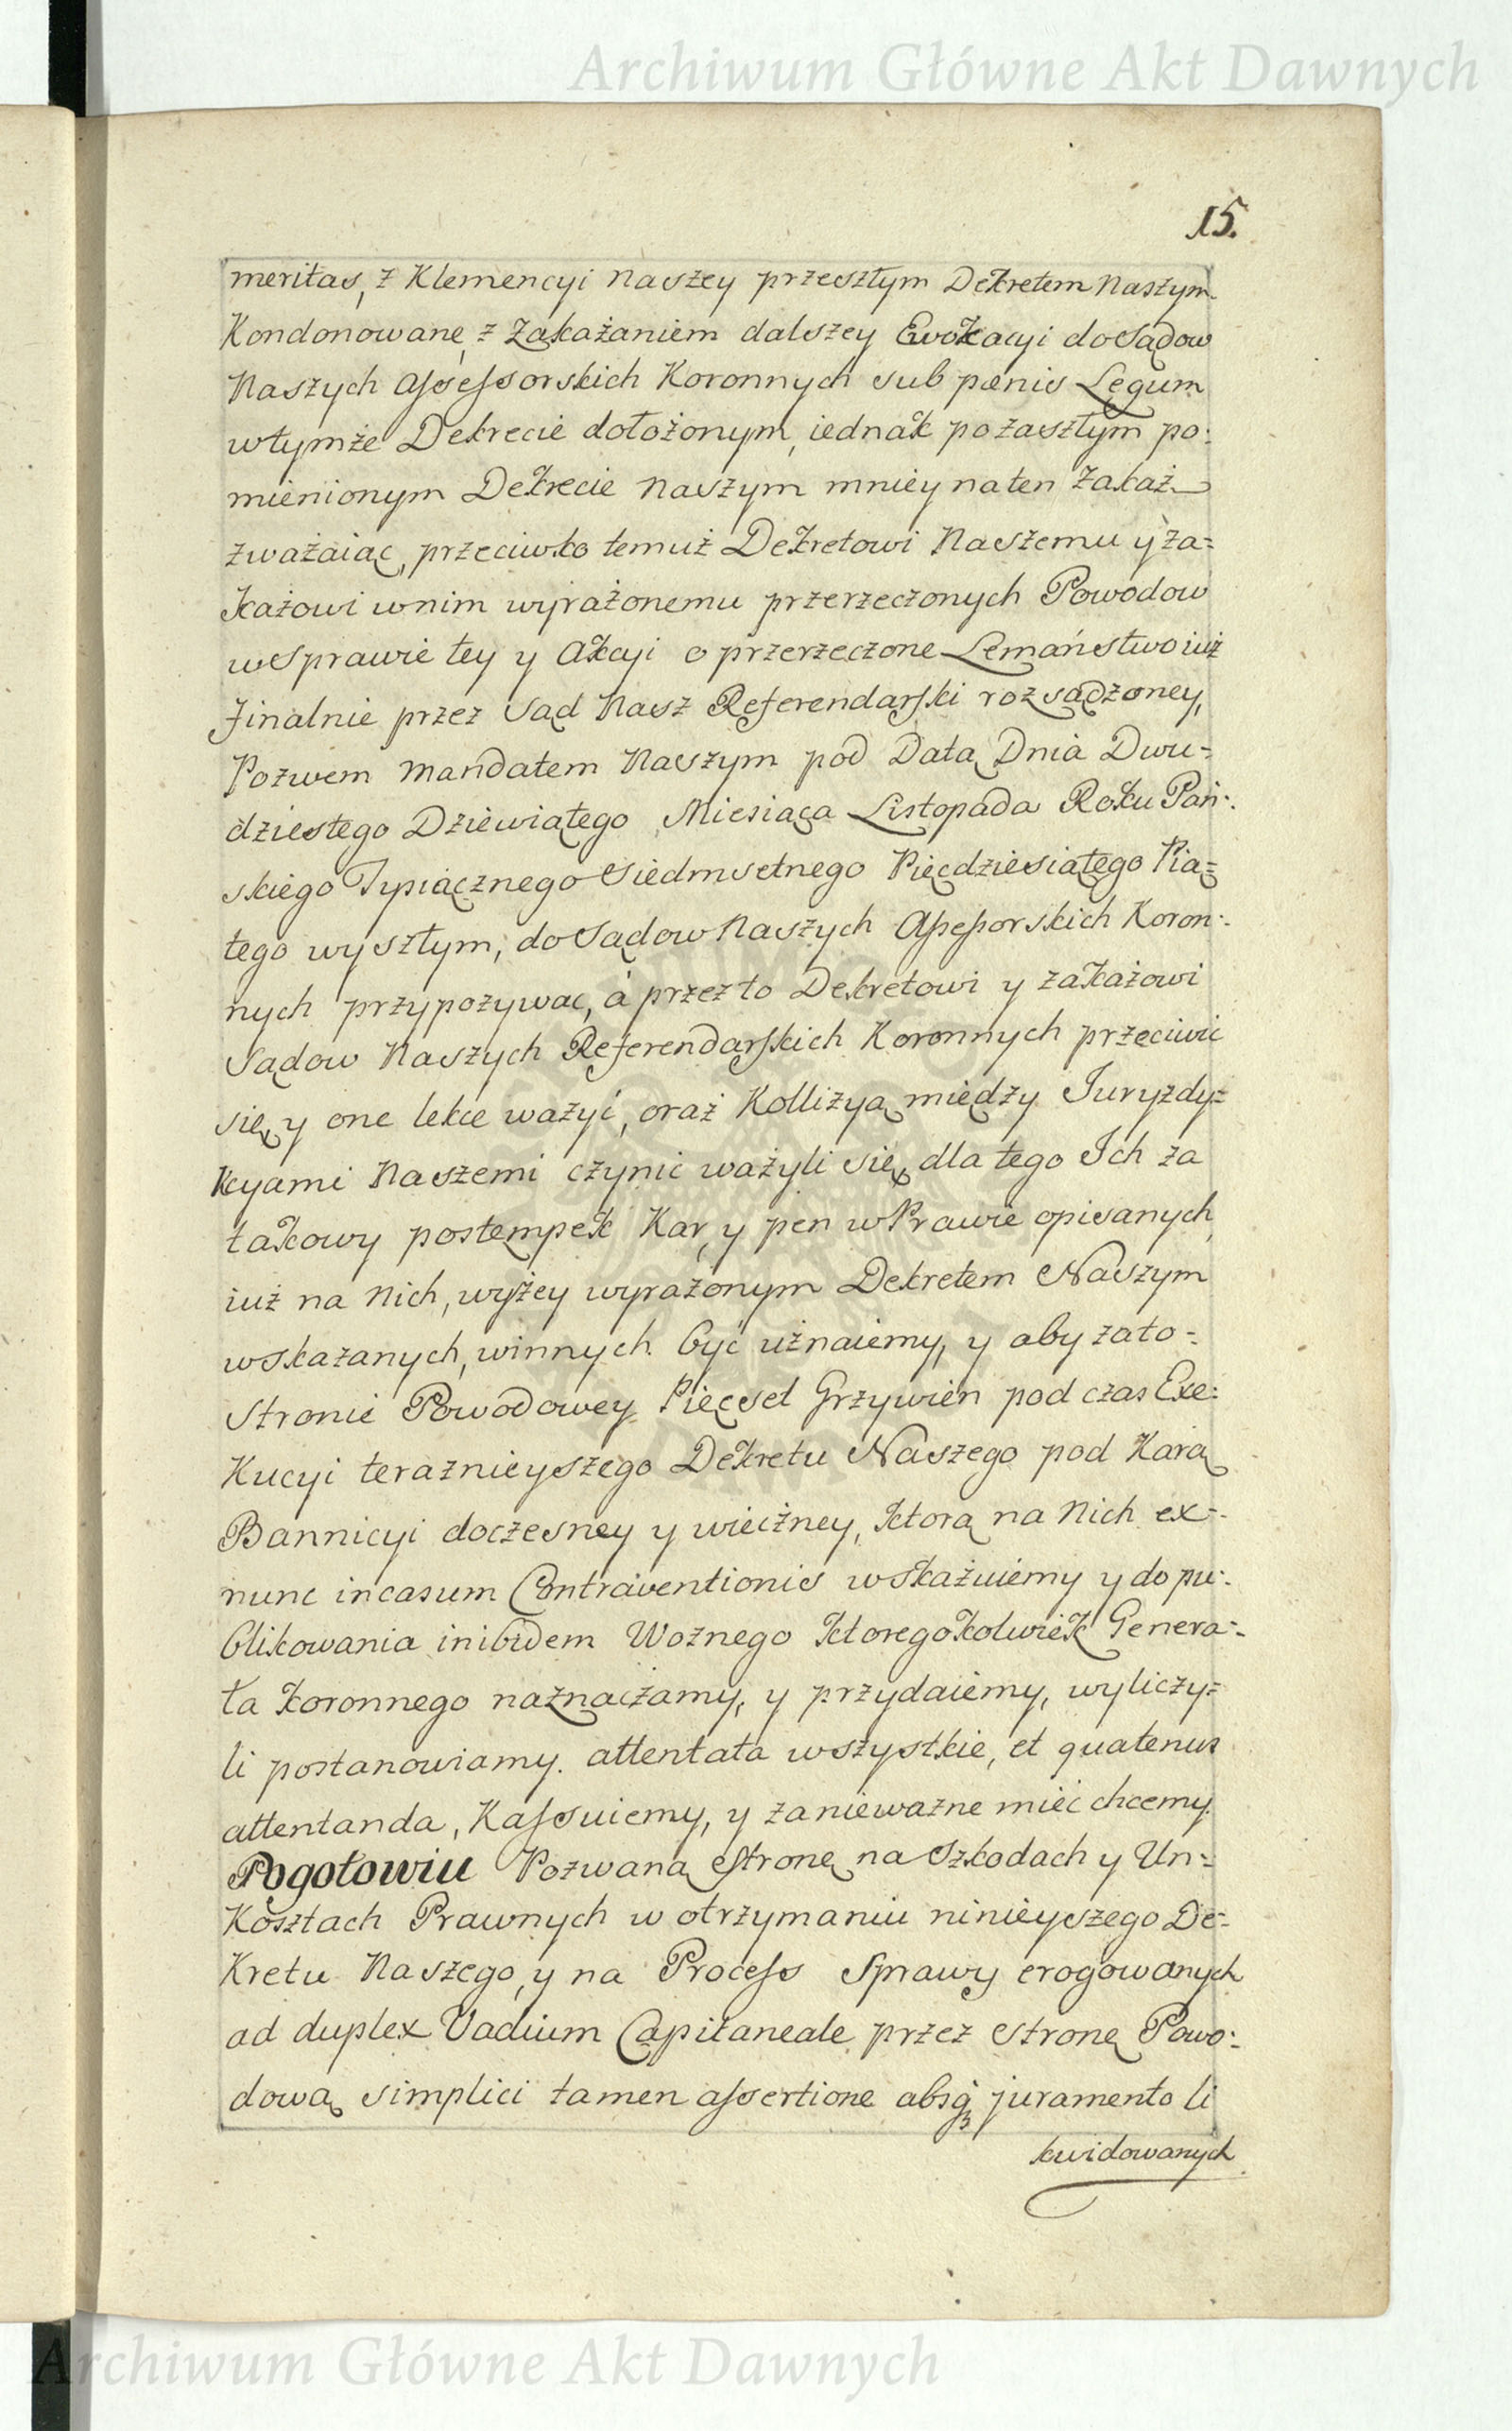 Archiwum Główne Akt Dawnych
15.
meritas, z Klemencyi Naszey przeszłym Dekretem Naszym
Kondonowanę z Zakażaniem dalszey Ewokacyi do Sądow
Naszych Assessorskich Koronnych sub pænis Legum
wtymże Dekrecie dołożonym, iednak po zaszłym po:
mienionym Dekrecie Naszym mniey na ten Zakaż
zważaiąc, przeciwko temuż Dekretowi Naszemu y za=
każowi wnim wyrażonemu przerzeczonych Powodow
w Sprawie tey y Akcyi o przerzeczone Lemaństwo iuż
finalnie przez Sąd Nasz Referendarski rozsądzoney,
Pozwem mandatem Naszym pod Datą Dnia Dwu=
dziestego Dziewiątego Miesiąca Listopada Roku Pań:
skiego Tysiącznego Siedmsetnego Pięcdziesiątego Pią=
tego wyszłym, do Sądow Naszych Assessorskich Koron:
nych przypozywac, á przez to Dekretowi y zakażowi
Sądow Naszych Referendarskich Koronnych przeciwic
się y one lekce ważyć, oraż Kollizyą między Juryzdy=
kcyami Naszemi czynic ważyli się, dla tego Ich za
takowy postempek Kar, y pen w Prawie opisanych,
iuż na Nich, wyżey wyrażonym Dekretem Naszym
wskazanych, winnych być uznaiemy, y aby zato=
Stronie Powodowey Pięcset Grzywien pod czas Exe:
kucyi teraznieyszego Dekretu Naszego pod Karą
Bannicyi doczesney y wieczney, ktorą na Nich ex=
nunc in casum Contraventionis wskażuiemy y do pu:
blikowania inibidem Woznego ktoregokolwiek Genera=
ła koronnego naznaczamy, y przydaiemy, wyliczy=
li postanowiamy. attentata wszystkie, et quatenus
attentanda, Kassuiemy, y za nieważne mieć chcemy.
Pogotowiu Pozwaną Stronę na Szkodach y Un=
Kosztach Prawnych w otrzymaniu ninieyszego De=
Kretu Naszego, y na Process Sprawy erogowanych
ad duplex Vadium Capitaneale przez Stronę Powo:
dową simplici tamen assertione absq juramento li
kwidowanych
Archiwum Główne Akt Dawnych